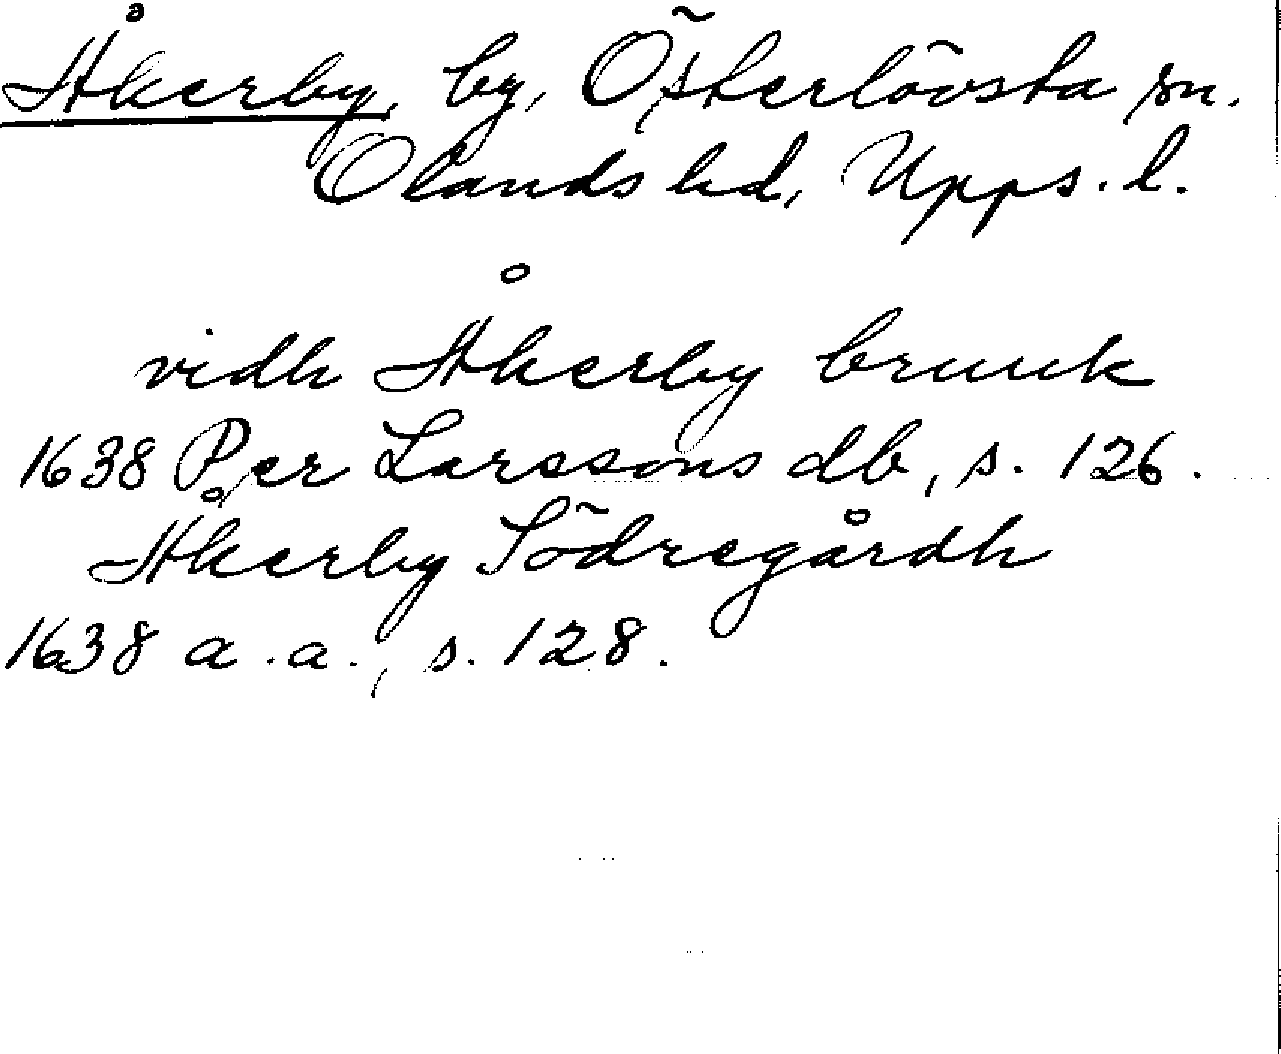 Åkerby, by, Österlövsta sn.
Olands hd, Upps. l.
vidh Åkerby bruuk
1638 Per Larssons db, s. 126.
Åkerby Södregårdh
1638 a.a., s. 128.